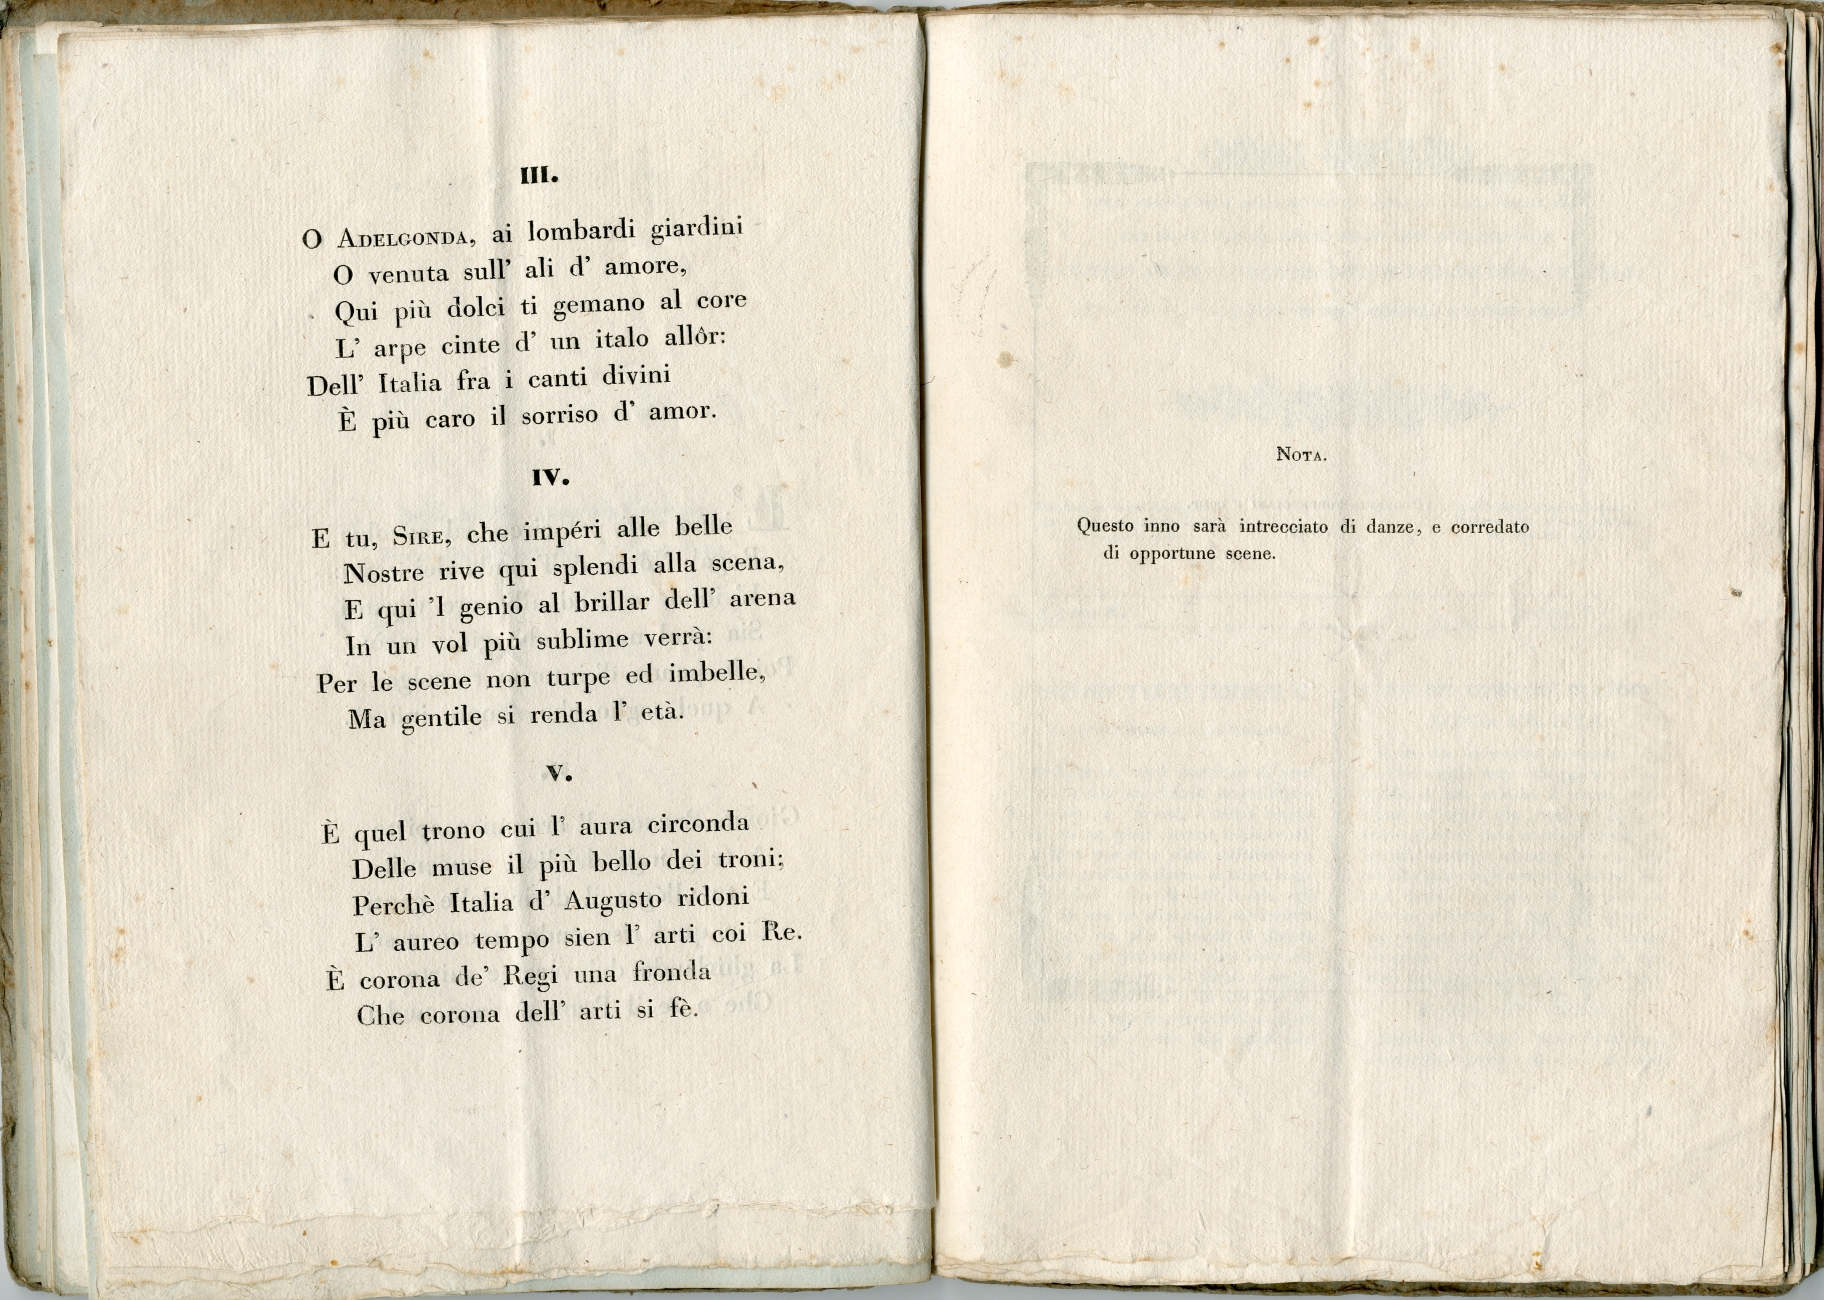 III.
O Adelgonda, ai lombardi giardini
O venuta sull' ali d' amore,
Qui più dolci ti gemano al core
L' arpe cinte d' un italo allôr:
Dell' Italia fra i canti divini
È più caro il sorriso d' amor.
IV.
E tu, Sire, che impéri alle belle
Nostre rive qui splendi alla scena,
E qui 'l genio al brillar dell' arena
In un vol più sublime verrà:
Per le scene non turpe ed imbelle,
Ma gentile si renda l' età.
V.
È quel trono cui l' aura circonda
Delle muse il più bello dei troni;
Perchè Italia d' Augusto ridoni
L' aureo tempo sien l' arti coi Re.
È corona de' Regi una fronda
Che corona dell' arti si fè.
Nota.
Questo inno sarà intrecciato di danze, e corredato
di opportune scene.